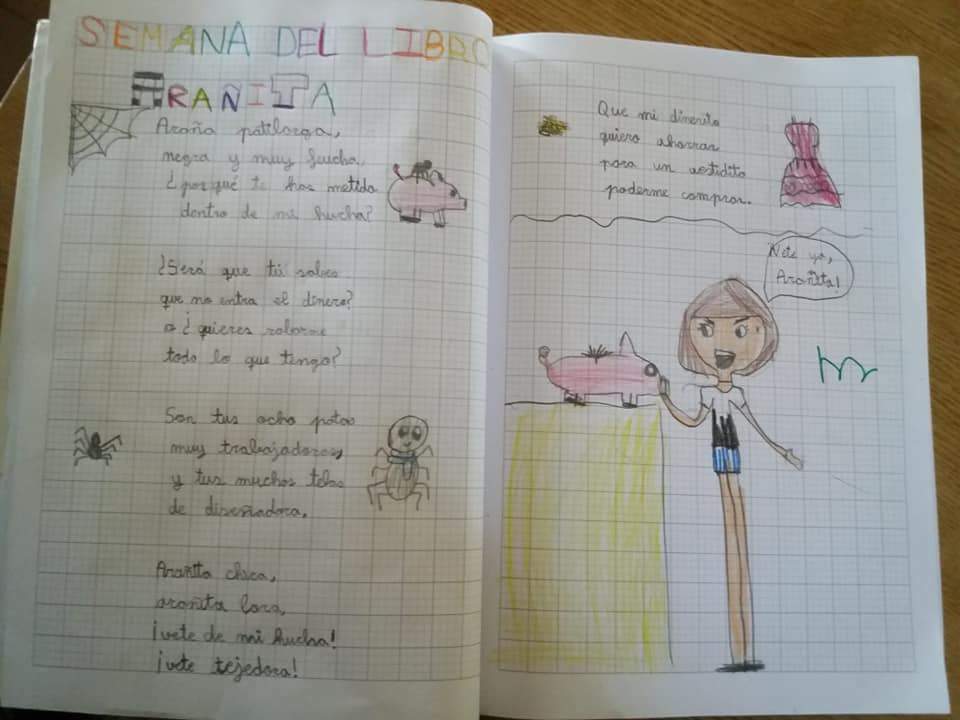 SEMANA DEL LIBRO
ARAÑITA
Araña patilarga,
negra y muy feucha,
¿por qué te has metido
dentro de mi hucha?
¿Será que tú sabes
que no entra el dinero?
o ¿quieres robarme
todo lo que tengo?
Son tus ocho patas
muy trabajadoras,
y tus muchas telas
de diseñadora.
Arañita chica,
arañita lora,
¡vete de mi hucha!
¡vete tejedora!
Que mi dinerito
quiero ahorrar
para un vestidito
poderme comprar.
Vete ya,
Arañita!